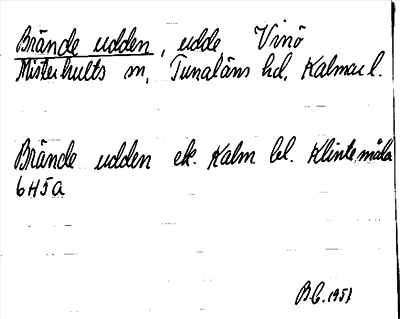 Brände udden, udde Vinö
Misterhults sn, Tunaläns hd, Kalmar l.
Brände udden ek. Kalm bl. Klintemåla
6H5a
B.C. 1951